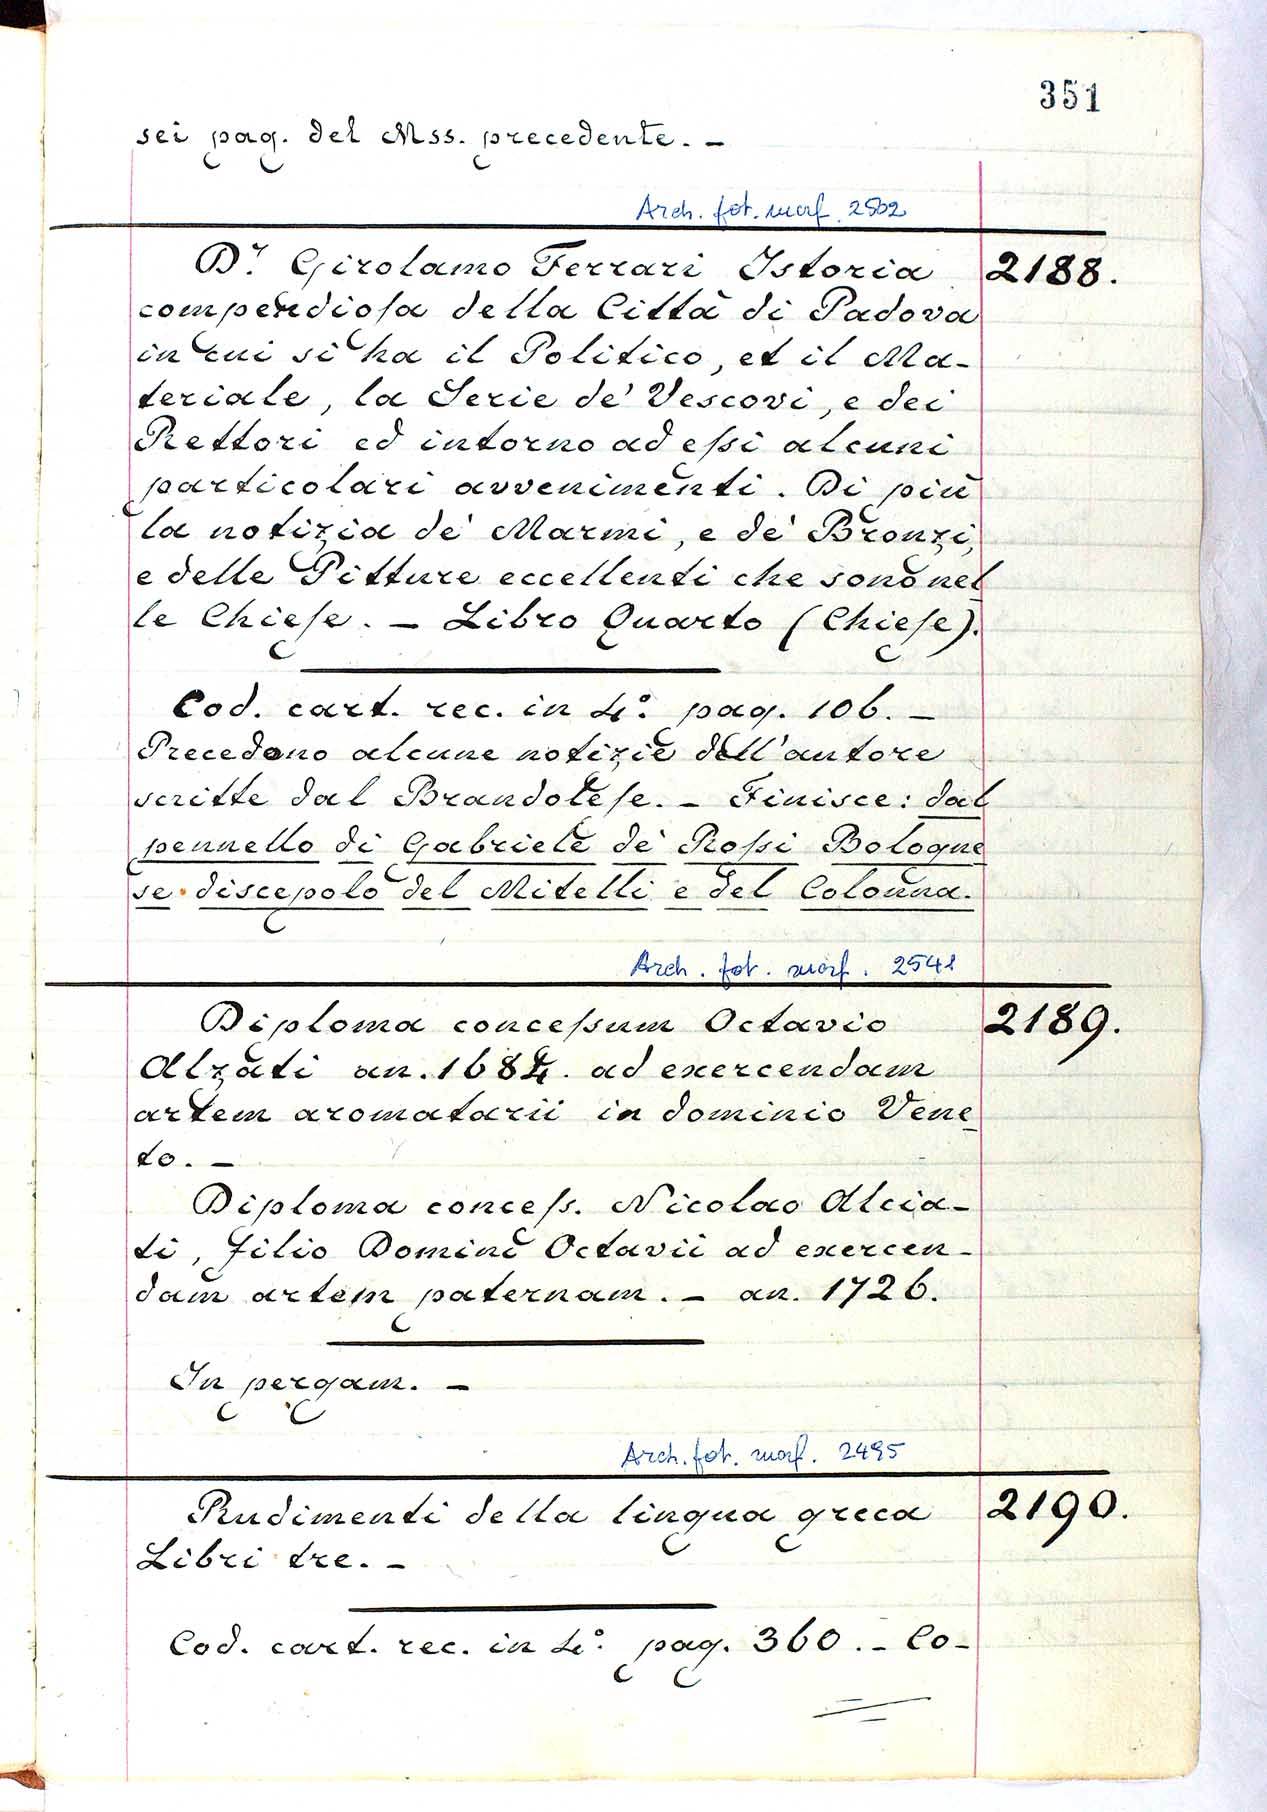 351
sei pag. del Mss. precedente. –
Arch. fot. marf. 2502
Dʳ. Girolamo Ferrari Istoria
2188.
compendioſa della Città di Padova
in cui si ha il Politico, et il Ma-
teriale, la Serie de' Vescovi, e dei
Rettori ed intorno ad eſsi alcuni
particolari avvenimenti. Di più
la notizia de' Marmi, e de' Bronzi,
e delle Pitture eccellenti che sono nel
le Chieſe. – Libro Quarto (Chieſe).
Cod. cart. rec. in 4.° pag. 106. –
Precedono alcune notizie dell'autore
scritte dal Brandoleſe. – Finisce: dal
pennello di Gabriele de' Roſsi Bologne
se discepolo del Mitelli e del Colonna.
Arch. fot. marf. 2541
Diploma conceſsum Octavio
2189.
Alzati an. 1684. ad exercendam
artem aromatarii in dominio Vene
to. –
Diploma conceſs. Nicolao Alcia-
ti, filio Domini Octavii ad exercen-
dam artem paternam. – an. 1726.
In pergam. –
Arch. fot. marf. 2495
Rudimenti della lingua greca
2190.
Libri tre. –
Cod. cart. rec. in 4.° pag. 360. – Co-